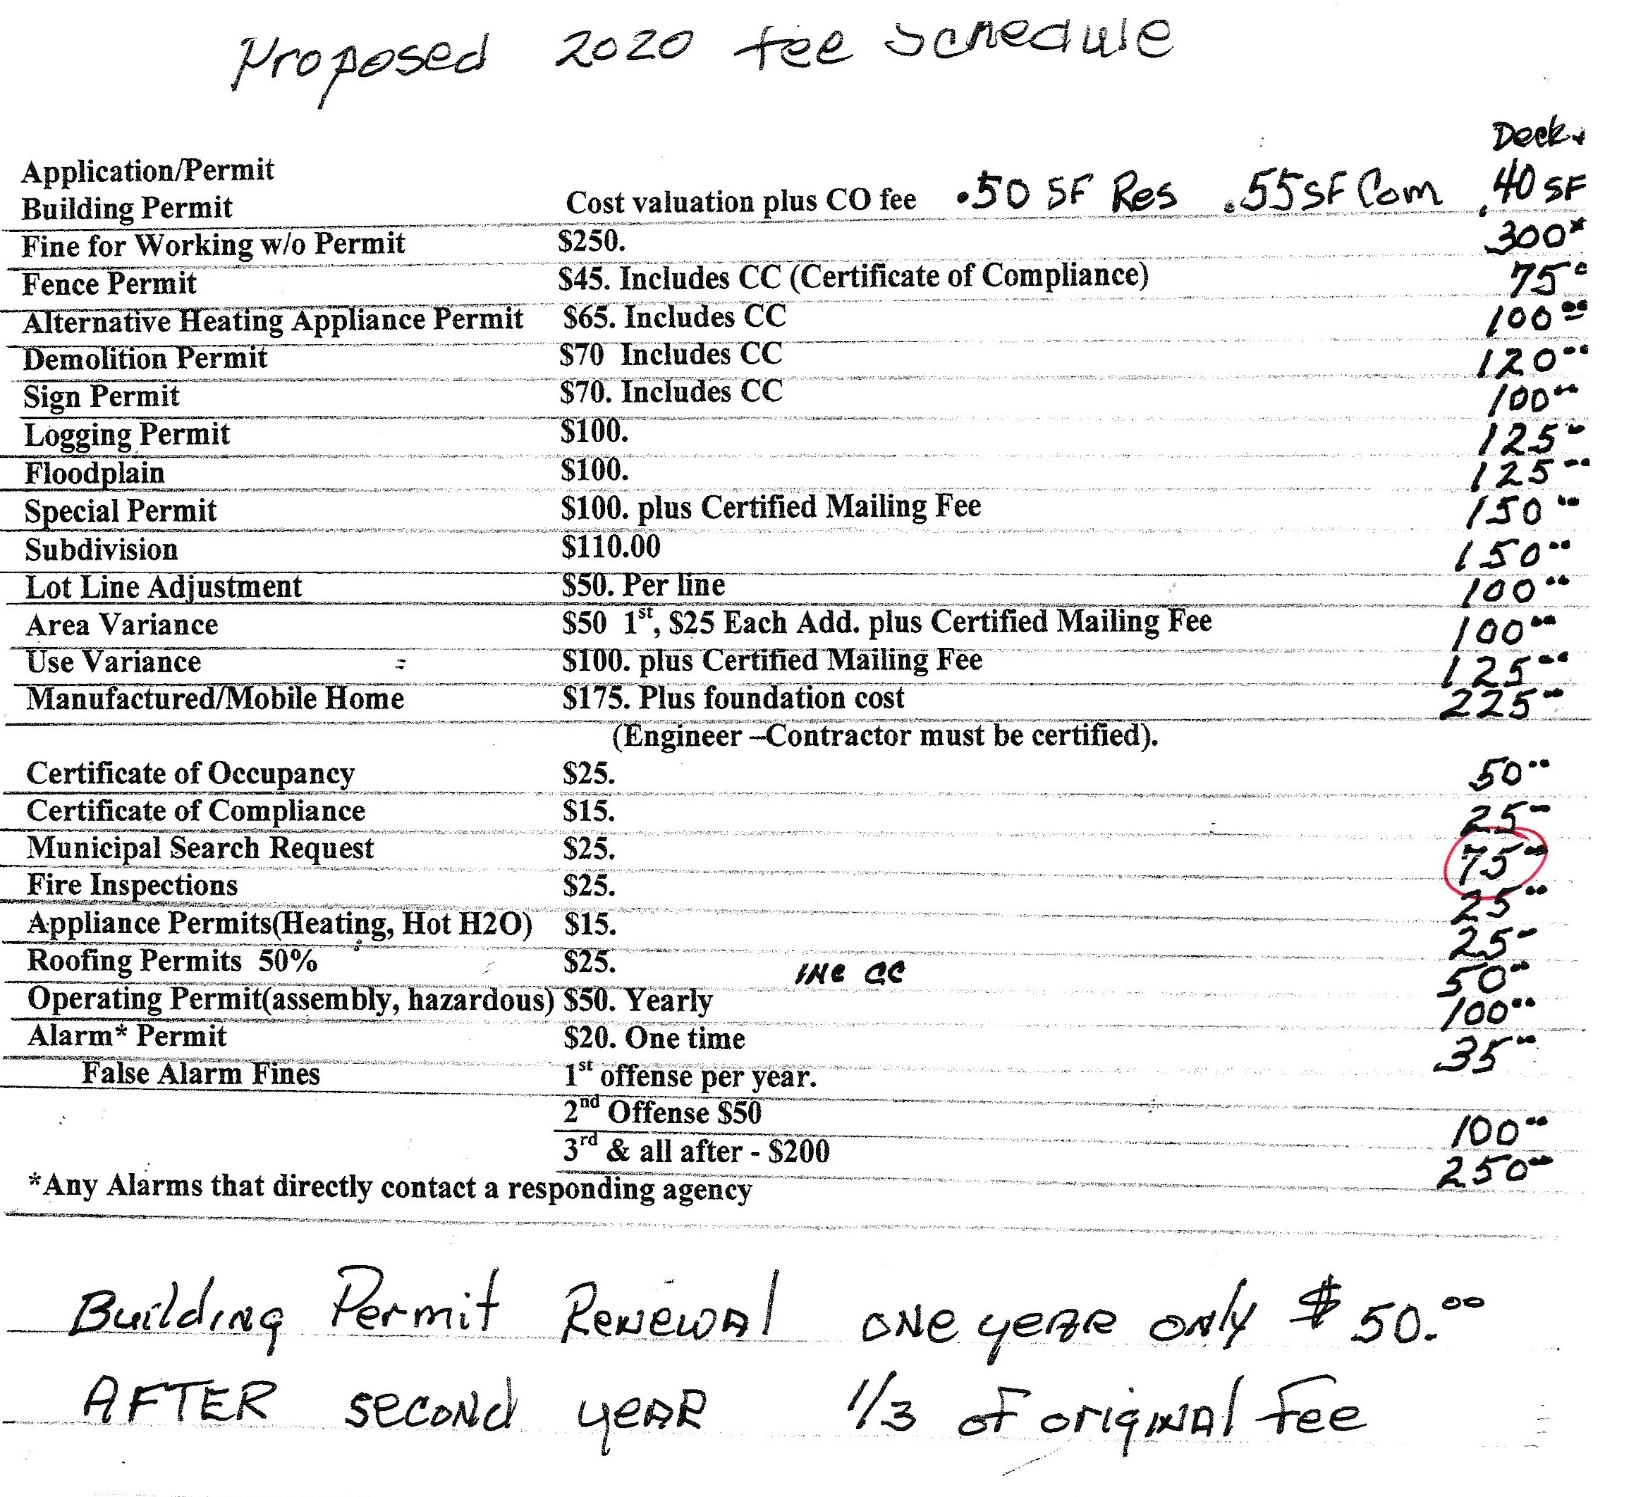 Proposed 2020 fee schedule
Deck
Application/Permit
Building Permit Cost valuation plus CO fee .50 SF Res .55 SF Com .40 SF
Fine for Working w/o Permit $250. 300
Fence Permit $45. Includes CC (Certificate of Compliance) 75
Alternative Heating Appliance Permit $65. Includes CC 100.00
Demolition Permit $70 Includes CC 120.00
Sign Permit $70. Includes CC 100.00
Logging Permit $100. 125
Floodplain $100. 125.00
Special Permit $100. plus Certified Mailing Fee 150.00
Subdivision $110.00 150.00
Lot Line Adjustment $50. Per line 100.00
Area Variance $50 1st, $25 Each Add. plus Certified Mailing Fee 100.00
Use Variance $100. plus Certified Mailing Fee 125.00
Manufactured/Mobile Home $175. Plus foundation cost 225
(Engineer –Contractor must be certified).
Certificate of Occupancy $25. 50.00
Certificate of Compliance $15. 25
Municipal Search Request $25. 75.00
Fire Inspections $25. 25.00
Appliance Permits(Heating, Hot H2O) $15. 25
Roofing Permits 50% $25. INC CC 50
Operating Permit(assembly, hazardous) $50. Yearly 100.00
Alarm* Permit $20. One time 35.00
False Alarm Fines 1st offense per year.
2nd Offense $50 100.00
3rd & all after - $200 250.00
*Any Alarms that directly contact a responding agency
Building Permit Renewal one year only $50.00
AFTER second year 1/3 of original fee